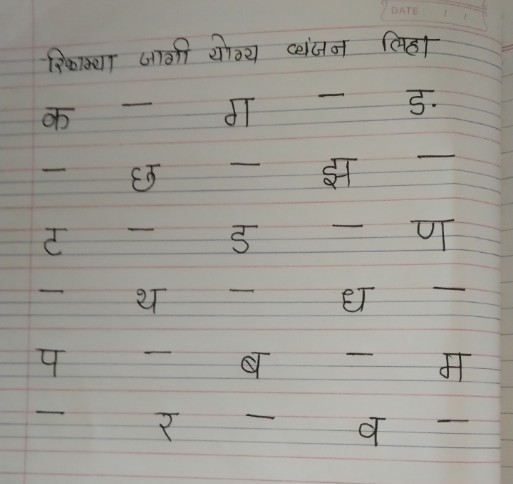 DATE / /
रिकाम्या जागी योग्य व्यंजन लिहा
क - ग - ङ
- छ - झ -
ट - ड - ण
- थ - ध -
प - ब - म
- र - व -